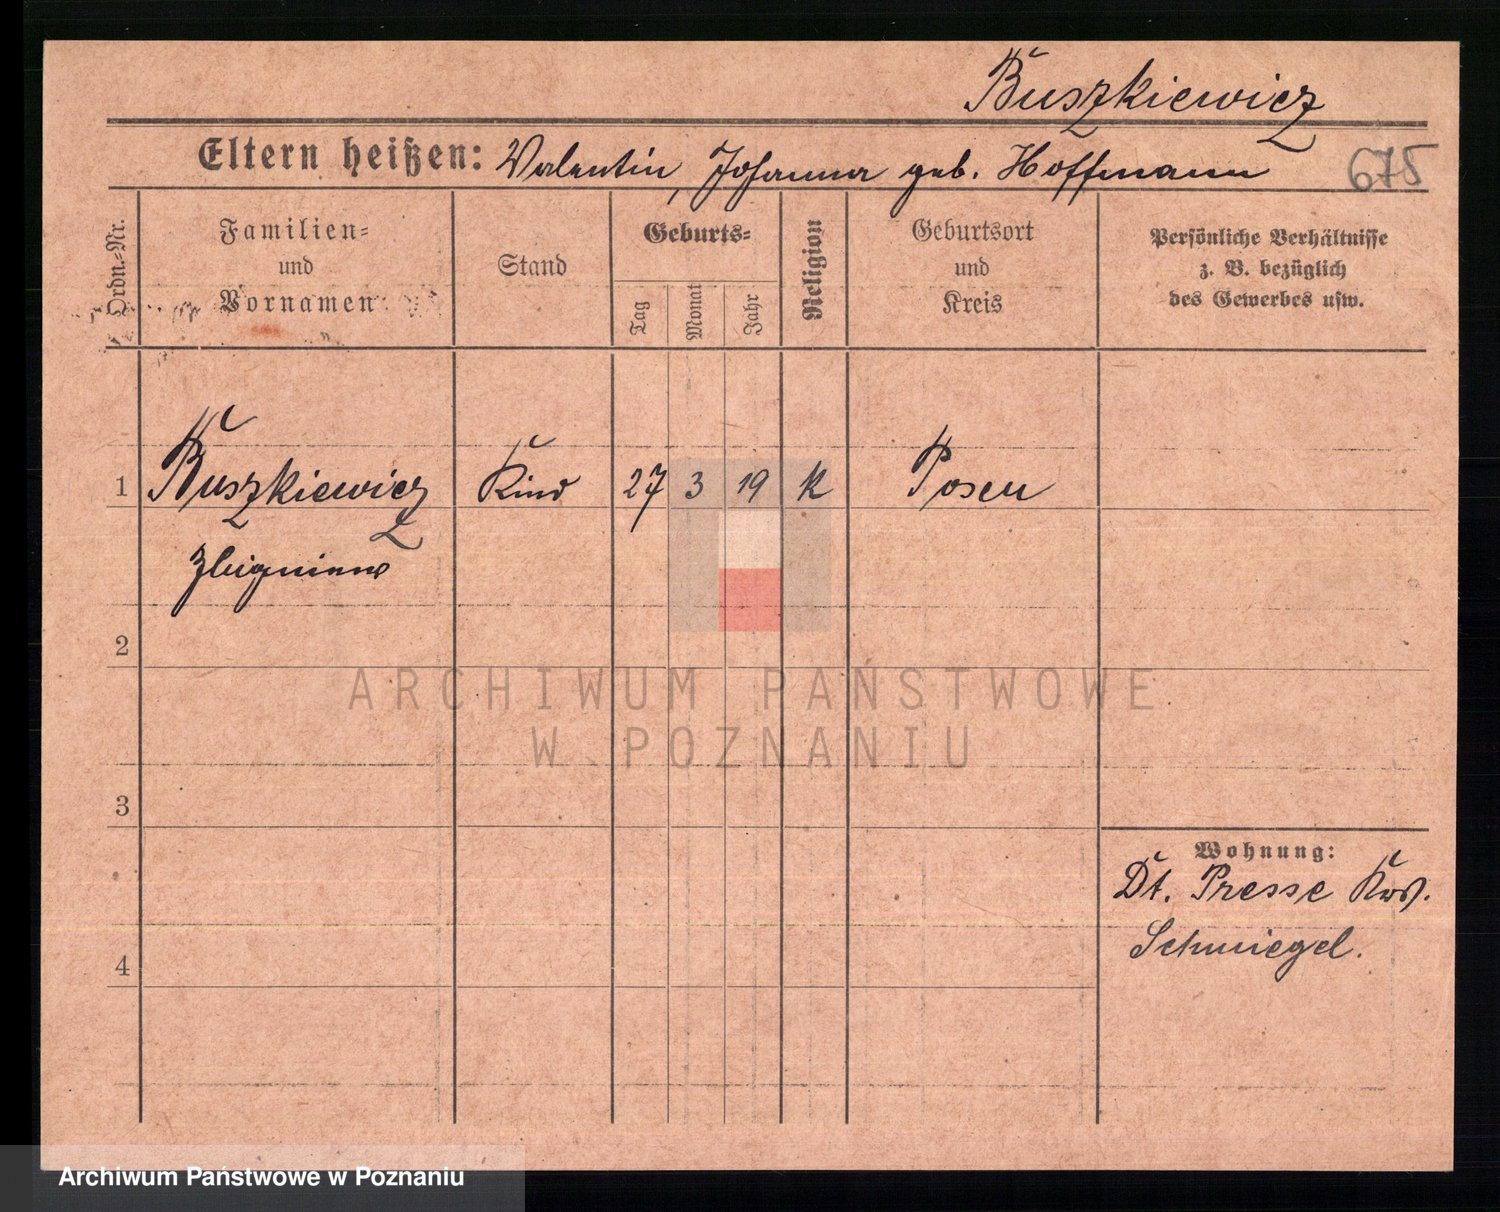 Buszkiewicz
Eltern heißen: Valentin, Johanna geb. Hoffmann 675
Ordn.-Nr.
Familien-
und
Vornamen
Stand
Geburts-
Tag
Monat
Jahr
Religion
Geburtsort
und
Kreis
Persönliche Verhältnisse
z. B. bezüglich
des Gewerbes usw.
1 Buszkiewicz Kind 27 3 19 K Posen
Zbigniew
2
ARCHIWUM PAŃSTWOWE
W POZNANIU
3
Wohnung:
Dt. Presse Krs.
Schmiegel.
4
Archiwum Państwowe w Poznaniu